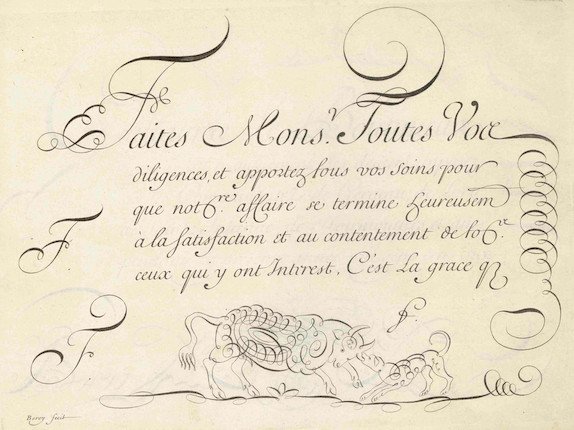 Faites Mons.r Toutes
diligences, et apportez tous vos soins pour
que notre. affaire se termine heureusem
à la satisfaction et au contentement de
ceux qui y ont Intrest, C'est La grace q
F
F
Berey fecit